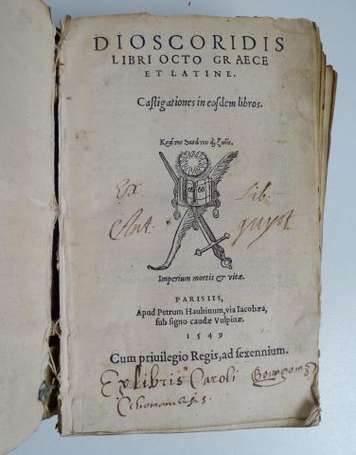 DIOSCORIDIS
LIBRI OCTO GRAECE
ET LATINE.
Castigationes in eosdem libros.
Ex Lib.
Ant. guyot
Imperium mortis & vitæ.
PARISIIS,
Apud Petrum Haultinum, via Iacobæa,
sub signo caudæ Vulpinæ.
1549
Cum priuilegio Regis, ad sexennium.
Ex libris Caroli